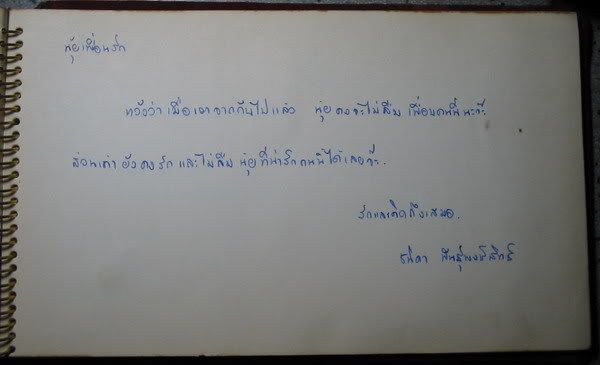 นุ้ยเพื่อนรัก
หวังว่าเมื่อเราจากกันไปแล้ว นุ้ยคงจะไม่ลืม เพื่อนคนนี้นะจ๊ะ
ส่วนเค้า ยังคงรัก และไม่ลืม นุ้ย ที่น่ารักคนนี้ได้เลยจ้ะ.
รักและคิดถึงเสมอ.